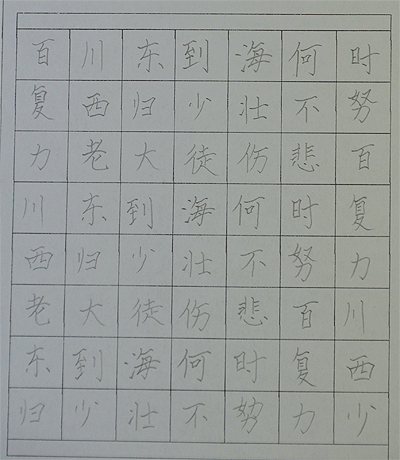 百川东到海何时
复西归少壮不努
力老大徒伤悲百
川东到海何时复
西归少壮不努力
老大徒伤悲百川
东到海何时复西
归少壮不努力少